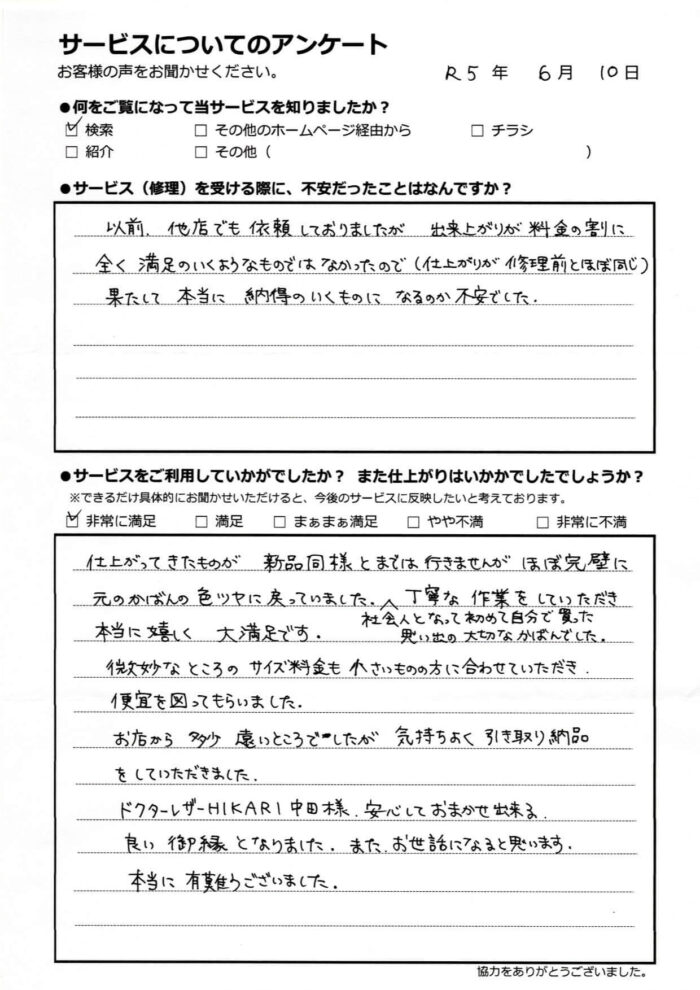 サービスについてのアンケート
お客様の声をお聞かせください。
R5 年 6月 10日
●何をご覧になって当サービスを知りましたか？
☑ 検索 □ その他のホームページ経由から □ チラシ
□ 紹介 □ その他（ ）
●サービス（修理）を受ける際に、不安だったことはなんですか？
以前、他店でも依頼しておりましたが 出来上がりが料金の割に
全く満足のいくようなものではなかったので（仕上がりが修理前とほぼ同じ）
果たして本当に納得のいくものになるのか不安でした.
●サービスをご利用していかがでしたか？ また仕上がりはいかかでしたでしょうか？
※できるだけ具体的にお聞かせいただけると、今後のサービスに反映したいと考えております。
☑ 非常に満足 □ 満足 □ まぁまぁ満足 □ やや不満 □ 非常に不満
仕上がってきたものが 新品同様とまでは行きませんが ほぼ完璧に
元のかばんの色ツヤに戻っていました. 丁寧な作業をしていただき
社会人となって初めて自分で買った
思い出の大切なかばんでした.
本当に嬉しく 大満足です.
微妙なところのサイズ料金も小さいものの方に合わせていただき.
便宜を図ってもらいました.
お店から多少遠いところでしたが 気持ちよく引き取り納品
をしていただきました.
ドクターレザーHIKARI中田様. 安心しておまかせ出来る
良い御縁となりました. また. お世話になると思います.
本当に有難うございました.
協力をありがとうございました。